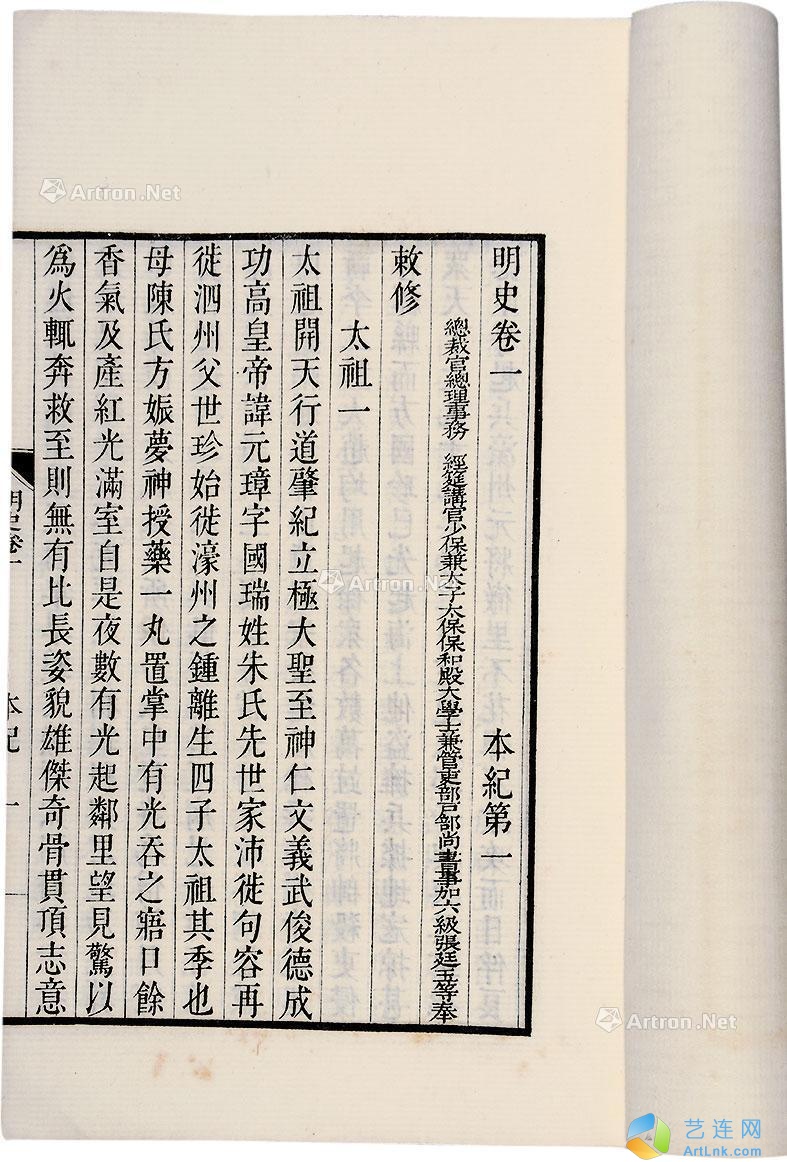 明史卷一 本紀第一
總裁官總理事務 經筵講官少保兼太子太保保和殿大學士兼管吏部戶部尚書事加六級張廷玉等奉
敕修
太祖一
太祖開天行道肇紀立極大聖至神仁文義武俊德成
功高皇帝諱元璋字國瑞姓朱氏先世家沛徙句容再
徙泗州父世珍始徙濠州之鍾離生四子太祖其季也
母陳氏方娠夢神授藥一丸置掌中有光吞之寤口餘
香氣及產紅光滿室自是夜數有光起鄰里望見驚以
為火輒奔救至則無有比長姿貌雄傑奇骨貫頂志意
明史卷一 本紀 一
Artron.Net
Artron.Net
Artron.Net
艺连网
ArtLnk.com